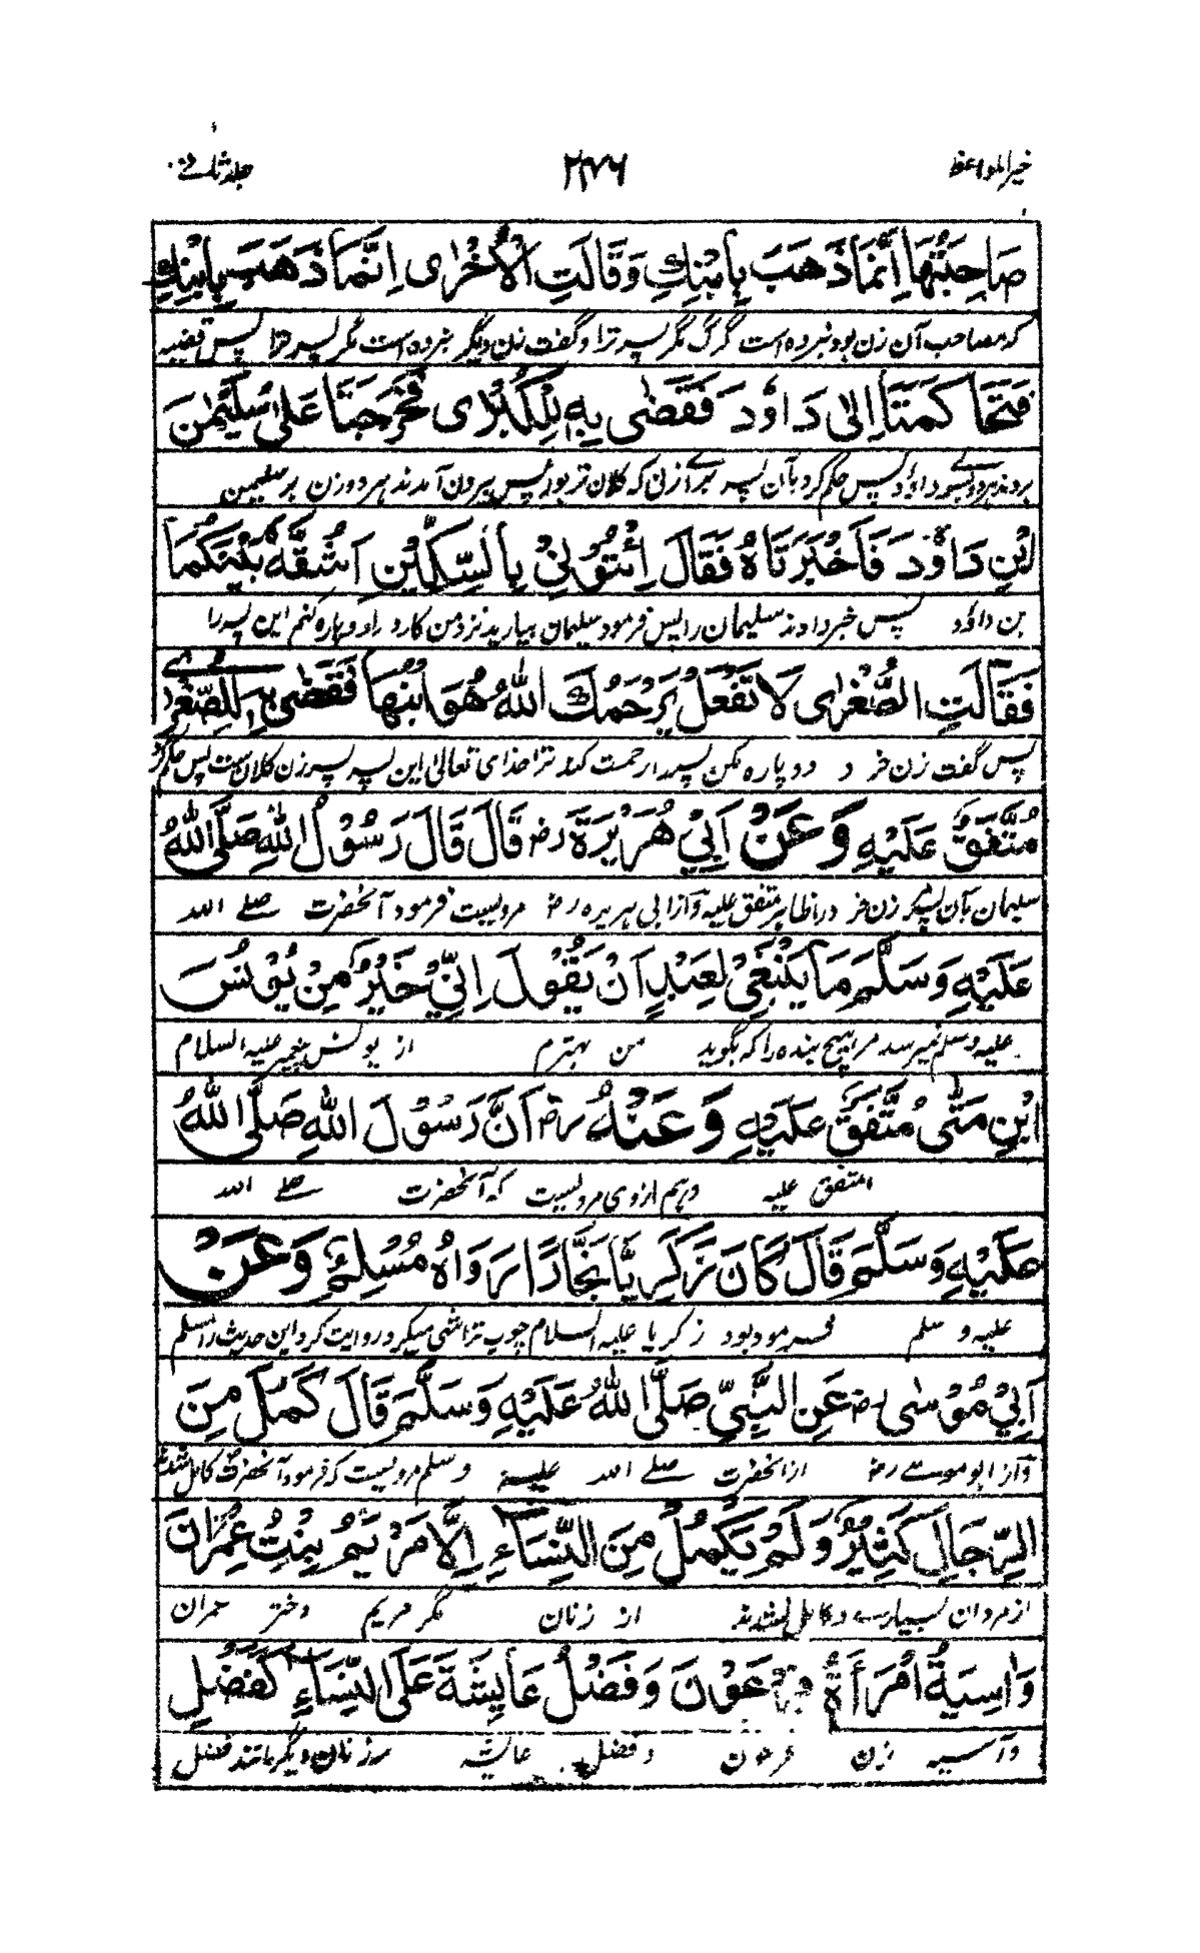 خیر المواعظ ۲۷۶ جلد ثانے
صَاحِبَتُهَا اِنَّمَا ذَهَبَ بِابْنِكِ وَقَالَتِ الْاُخْرٰى اِنَّمَا ذَهَبَ بِابْنِكِ
که مصاحب آن زن بود نبرده است گرگ مگر پسر ترا و گفت زن دیگر نبرده است مگر پسر ترا پس قضیه
فَتَحَاكَمَتَا اِلٰى دَاوٗدَ فَقَضٰى بِهٖ لِلْكُبْرٰى فَخَرَجَتَا عَلٰى سُلَيْمٰنَ
بردند هردو بسوے داؤد پس حکم کرد بآن پسر براے زنی که کلان تر بود پس بیرون آمدند هر دو زن بر سلیمن
ابْنِ دَاوٗدَ فَاَخْبَرَتَاهُ فَقَالَ ائْتُوْنِيْ بِالسِّكِّيْنِ اَشُقَّهٗ بَيْنَكُمَا
بن داؤد پس خبر دادند سلیمان را پس فرمود سلیمان بیارید نزد من کارد را دو پاره کنم این پسر را
فَقَالَتِ الصُّغْرٰى لَا تَفْعَلْ يَرْحَمُكَ اللهُ هُوَ ابْنُهَا فَقَضٰى بِهٖ لِلصُّغْرٰى
پس گفت زن خرد دو پاره مکن پسر را رحمت کند ترا خدای تعالی این پسر پسر زن کلان ست پس حکم کرد
مُتَّفَقٌ عَلَيْهِ وَعَنْ اَبِيْ هُرَيْرَةَ رض قَالَ قَالَ رَسُوْلُ اللهِ صَلَّى اللهُ
سلیمان بآن پسر زن خرد را متفق علیه و از ابی هریره رض مرویست فرمود آنحضرت صلے الله
عَلَيْهِ وَسَلَّمَ مَا يَنْبَغِيْ لِعَبْدٍ اَنْ يَّقُوْلَ اِنِّيْ خَيْرٌ مِنْ يُوْنُسَ
علیه وسلم نمیرسد مر هیچ بنده را که بگوید من بهترم از یونس پیغمبر علیه السلام
ابْنِ مَتّٰى مُتَّفَقٌ عَلَيْهِ وَعَنْهُ رض اَنَّ رَسُوْلَ اللهِ صَلَّى اللهُ
متفق علیه و هم ازوی مرویست که آنحضرت صلے الله
عَلَيْهِ وَسَلَّمَ قَالَ كَانَ زَكَرِيَّا نَجَّارًا رَوَاهُ مُسْلِمٌ وَعَنْ
علیه و سلم فرمود بود زکریا علیه السلام چوب تراشی میکرد روایت کرد این حدیث را مسلم
اَبِيْ مُوْسٰى رض عَنِ النَّبِيِّ صَلَّى اللهُ عَلَيْهِ وَسَلَّمَ قَالَ كَمُلَ مِنَ
و از ابو موسے رض از آنحضرت صلے الله علیه وسلم مرویست که فرمود آنحضرت کامل شدند
الرِّجَالِ كَثِيْرٌ وَلَمْ يَكْمُلْ مِنَ النِّسَاءِ اِلَّا مَرْيَمُ بِنْتُ عِمْرَانَ
از مردان بسیارے و کامل نشدند از زنان مگر مریم دختر عمران
وَاٰسِيَةُ امْرَأَةُ فِرْعَوْنَ وَفَضْلُ عَايِشَةَ عَلَى النِّسَاءِ كَفَضْلِ
و آسیه زن فرعون و فضل عایشه بر زنان دیگر مانند فضل